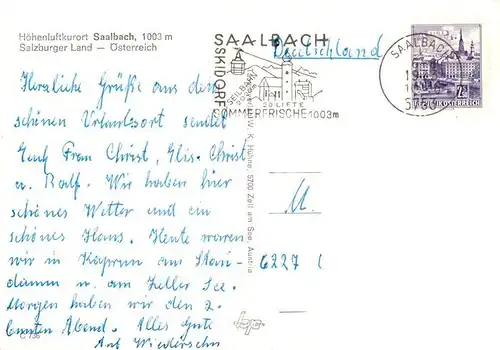 Höhenluftkurort Saalbach, 1003 m
Salzburger Land — Österreich
SAALBACH
SKIDORF
SEILBAHN
20 LIFTE
SOMMERFRISCHE 1003m
Deutschland
SAALBACH
REPUBLIK ÖSTERREICH
Herzliche Grüße aus dem
schönen Urlaubsort sendet
Euch Frau Christ, Elis. Christ
u. Ralf. Wir haben hier
schönes Wetter und ein
schönes Haus. Heute waren
wir in Kaprun am Stau-
damm u. am Zeller See.
Morgen haben wir den 2.
bunten Abend. Alles Gute
Auf Wiedersehn
W. K. Höhne, 5700 Zell am See, Austria
6227
C 736